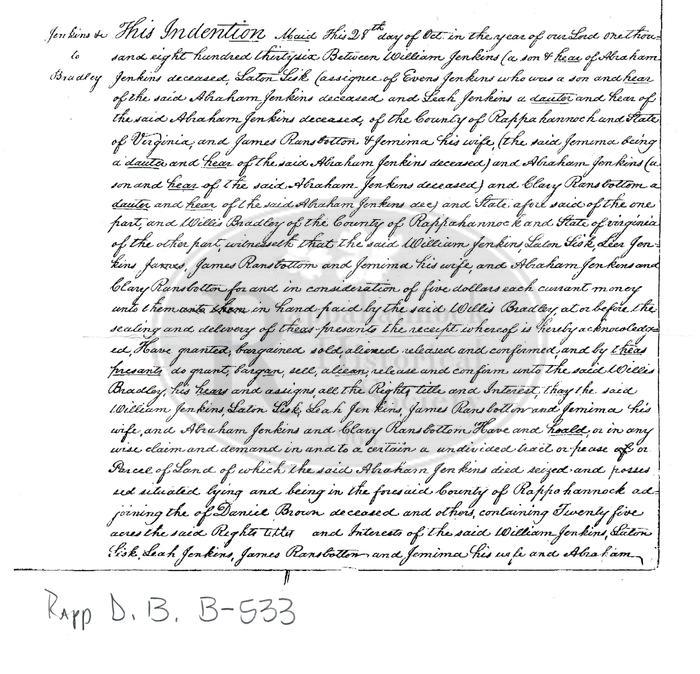 Jenkins &c
to
Bradley
This Indention Maid This 28th day of Oct in the year of our Lord one thou-
sand eight hundred thirtysix Between William Jenkins (a son & hear of Abraham
Jenkins deceased, Laton Sisk (assignee of Evens Jenkins who was a son and hear
of the said Abraham Jenkins deceased and Leah Jenkins a dauter and hear of
the said Abraham Jenkins deceased, of the County of Rappahannock and State
of Virginia, and James Ransbottom & Jemima his wife, (the said Jemima being
a dauta and hear of the said Abraham Jenkins deceased) and Abraham Jenkins (a
son and hear of the said Abraham Jenkins deceased) and Clary Ransbottom a
dauter and hear of the said Abraham Jenkins dec) and State afore said of the one
part, and Willis Bradley of the County of Rappahannock and State of virginia
of the other part, witnesseth that the said William Jenkins, Laton Sisk, Leer Jen-
kins James, James Ransbottom and Jemima his wife, and Abraham Jenkins and
Clary Ransbottom for and in consideration of five dollars each currant money
unto them unto them in hand paid by the said Willis Bradley, at or before the
sealing and delivery of theas presants the receipt whereof is hereby acknowledg-
ed, Have granted, bargained sold, aliened released and confirmed, and by theas
presants do grant, bargan, sell, aliean, release and confirm unto the said Willis
Bradley, his hears and assigns all the Rights title and Interest, thay the said
William Jenkins, Laton Sisk, Leah Jenkins, James Ransbottom and Jemima his
wife, and Abraham Jenkins and Clary Ransbottom Have and hoald, or in any
wise claim and demand in and to a certain a undivided tract or pease of or
Parcel of Land of which the said Abraham Jenkins died seized and posses
sed situated lying and being in the foresaid County of Rappahannock ad-
joining the of Daniel Brown deceased and others, containing Twenty five
acres the said Rights title and Interests of the said William Jenkins, Laton
Sisk, Leah Jenkins, James Ransbottom and Jemima his wife and Abraham
Rapp D. B. B-533